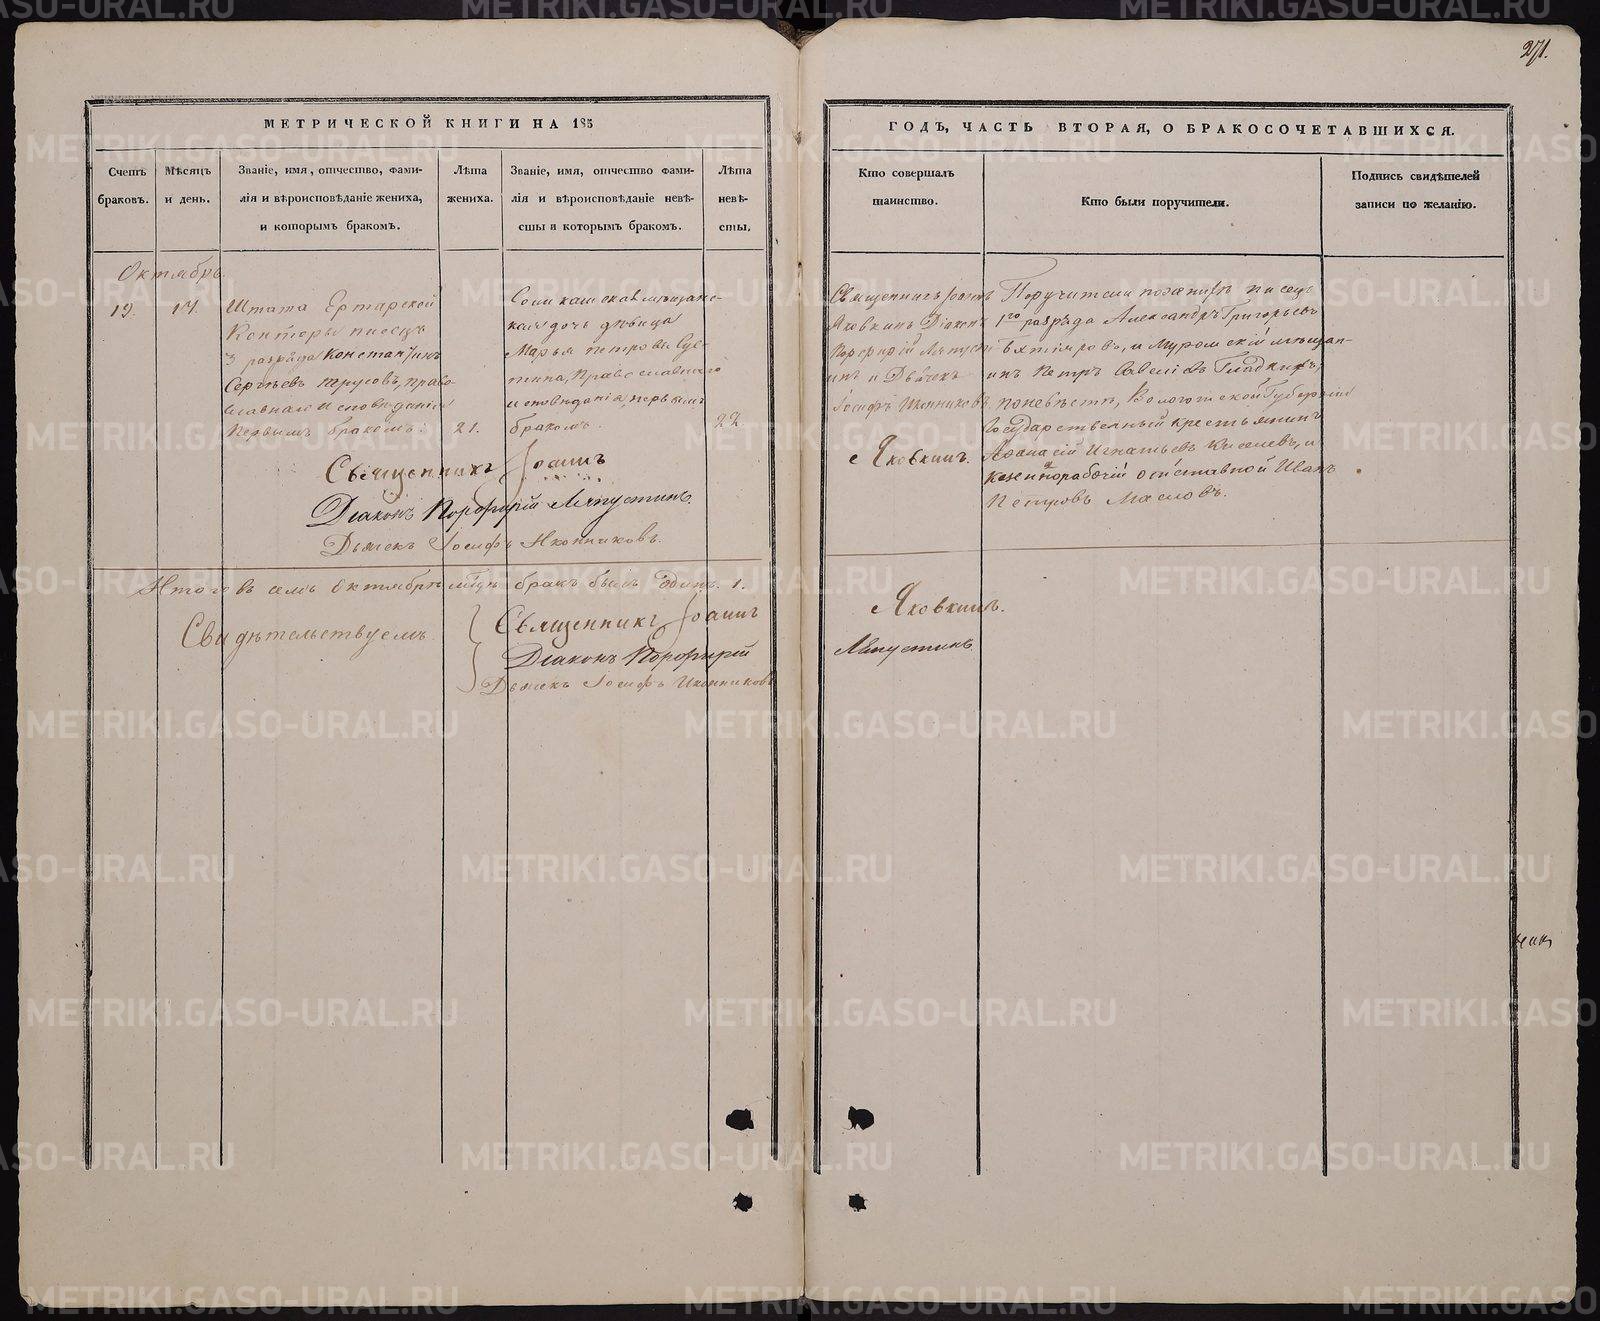 271.
МЕТРИЧЕСКОЙ КНИГИ НА 185
ГОДЪ, ЧАСТЬ ВТОРАЯ, О БРАКОСОЧЕТАВШИХСЯ.
Счетъ
браковъ.
Мѣсяцъ
и день.
Званіе, имя, отчество, фами-
лія и вѣроисповѣданіе жениха,
и которымъ бракомъ.
Лѣта
жениха.
Званіе, имя, отчество фами-
лія и вѣроисповѣданіе невѣ-
сты и которымъ бракомъ.
Лѣта
невѣ-
сты.
Кто совершалъ
таинство.
Кто были поручители.
Подпись свидѣтелей
записи по желанію.
Октябрь.
19.
17.
Штата Ертарской
Конторы писецъ
3 разряда Константинъ
Сергѣевъ право-
славнаго исповѣданія
первымъ бракомъ.
21.
Соликамская мѣщанс-
кая дочь дѣвица
Марья Петрова
православнаго
исповѣданія, первымъ
бракомъ.
22.
Священникъ Іоаннъ
Яковкинъ Діаконъ
Порфирій Ляпусти
инъ и Дьячекъ
Іосифъ Иконниковъ
Поручители по женихѣ писецъ
1го разряда Александръ Григорьевъ
и Муромскій мѣщан-
инъ Петръ Савеліевъ Гладкихъ,
по невѣстѣ, Вологотской Губерніи
Государственный крестьянинъ
Афанасій Игнатьевъ Киселевъ, и
отставной Иванъ
Петровъ Масловъ.
Священникъ Іоаннъ
Яковкинъ.
Діаконъ Порфирій Ляпустинъ.
Дьячекъ Іосифъ Иконниковъ.
Итого въ семъ октябрѣ мѣцѣ бракъ былъ одинъ. 1.
Свидѣтельствуемъ
Священникъ Іоаннъ
Яковкинъ.
Діаконъ Порфирій
Ляпустинъ
Дьячекъ Іосифъ Иконниковъ
METRIKI.GASO-URAL.RU